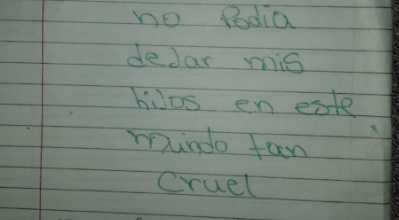 no Podia
deJar mis
hiJos en este
mundo tan
cruel